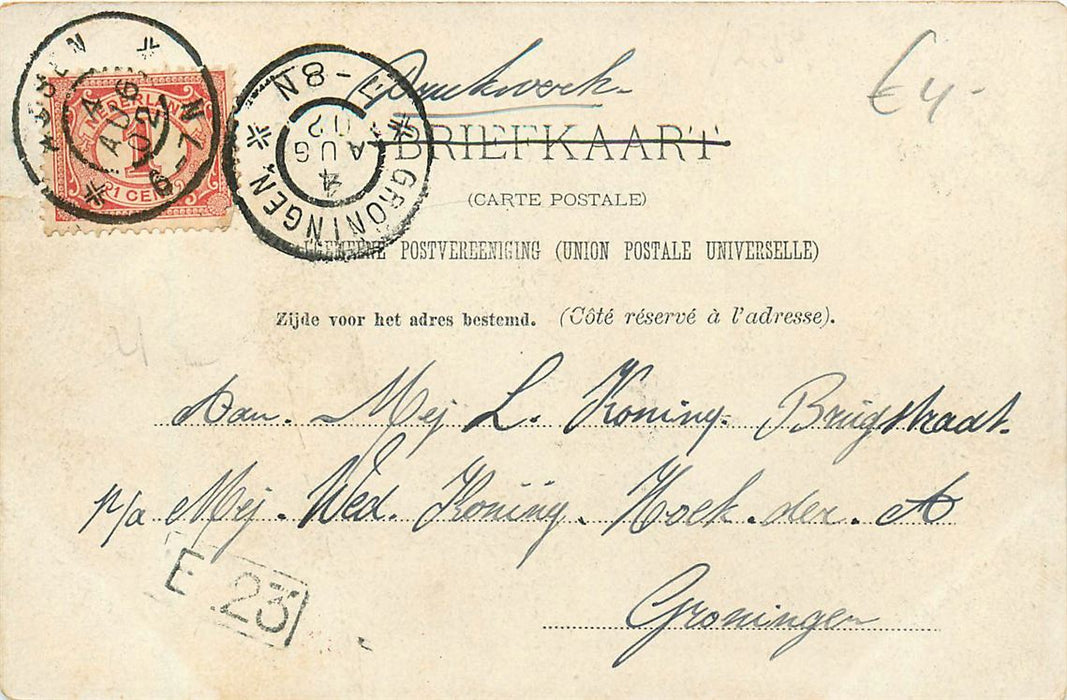 Drukwerk. € 4-
BRIEFKAART
(CARTE POSTALE)
ALGEMEENE POSTVEREENIGING (UNION POSTALE UNIVERSELLE)
Zijde voor het adres bestemd. (Côté réservé à l'adresse).
ASSEN
4 AUG 02
6-7N
NEDERLAND
1
1 CENT
GRONINGEN
4 AUG 02
-8N
Aan. Mej L. Koning. Brugstraat.
p/a Mej. Wed. Koning. Hoek. der. A
Groningen
E 23